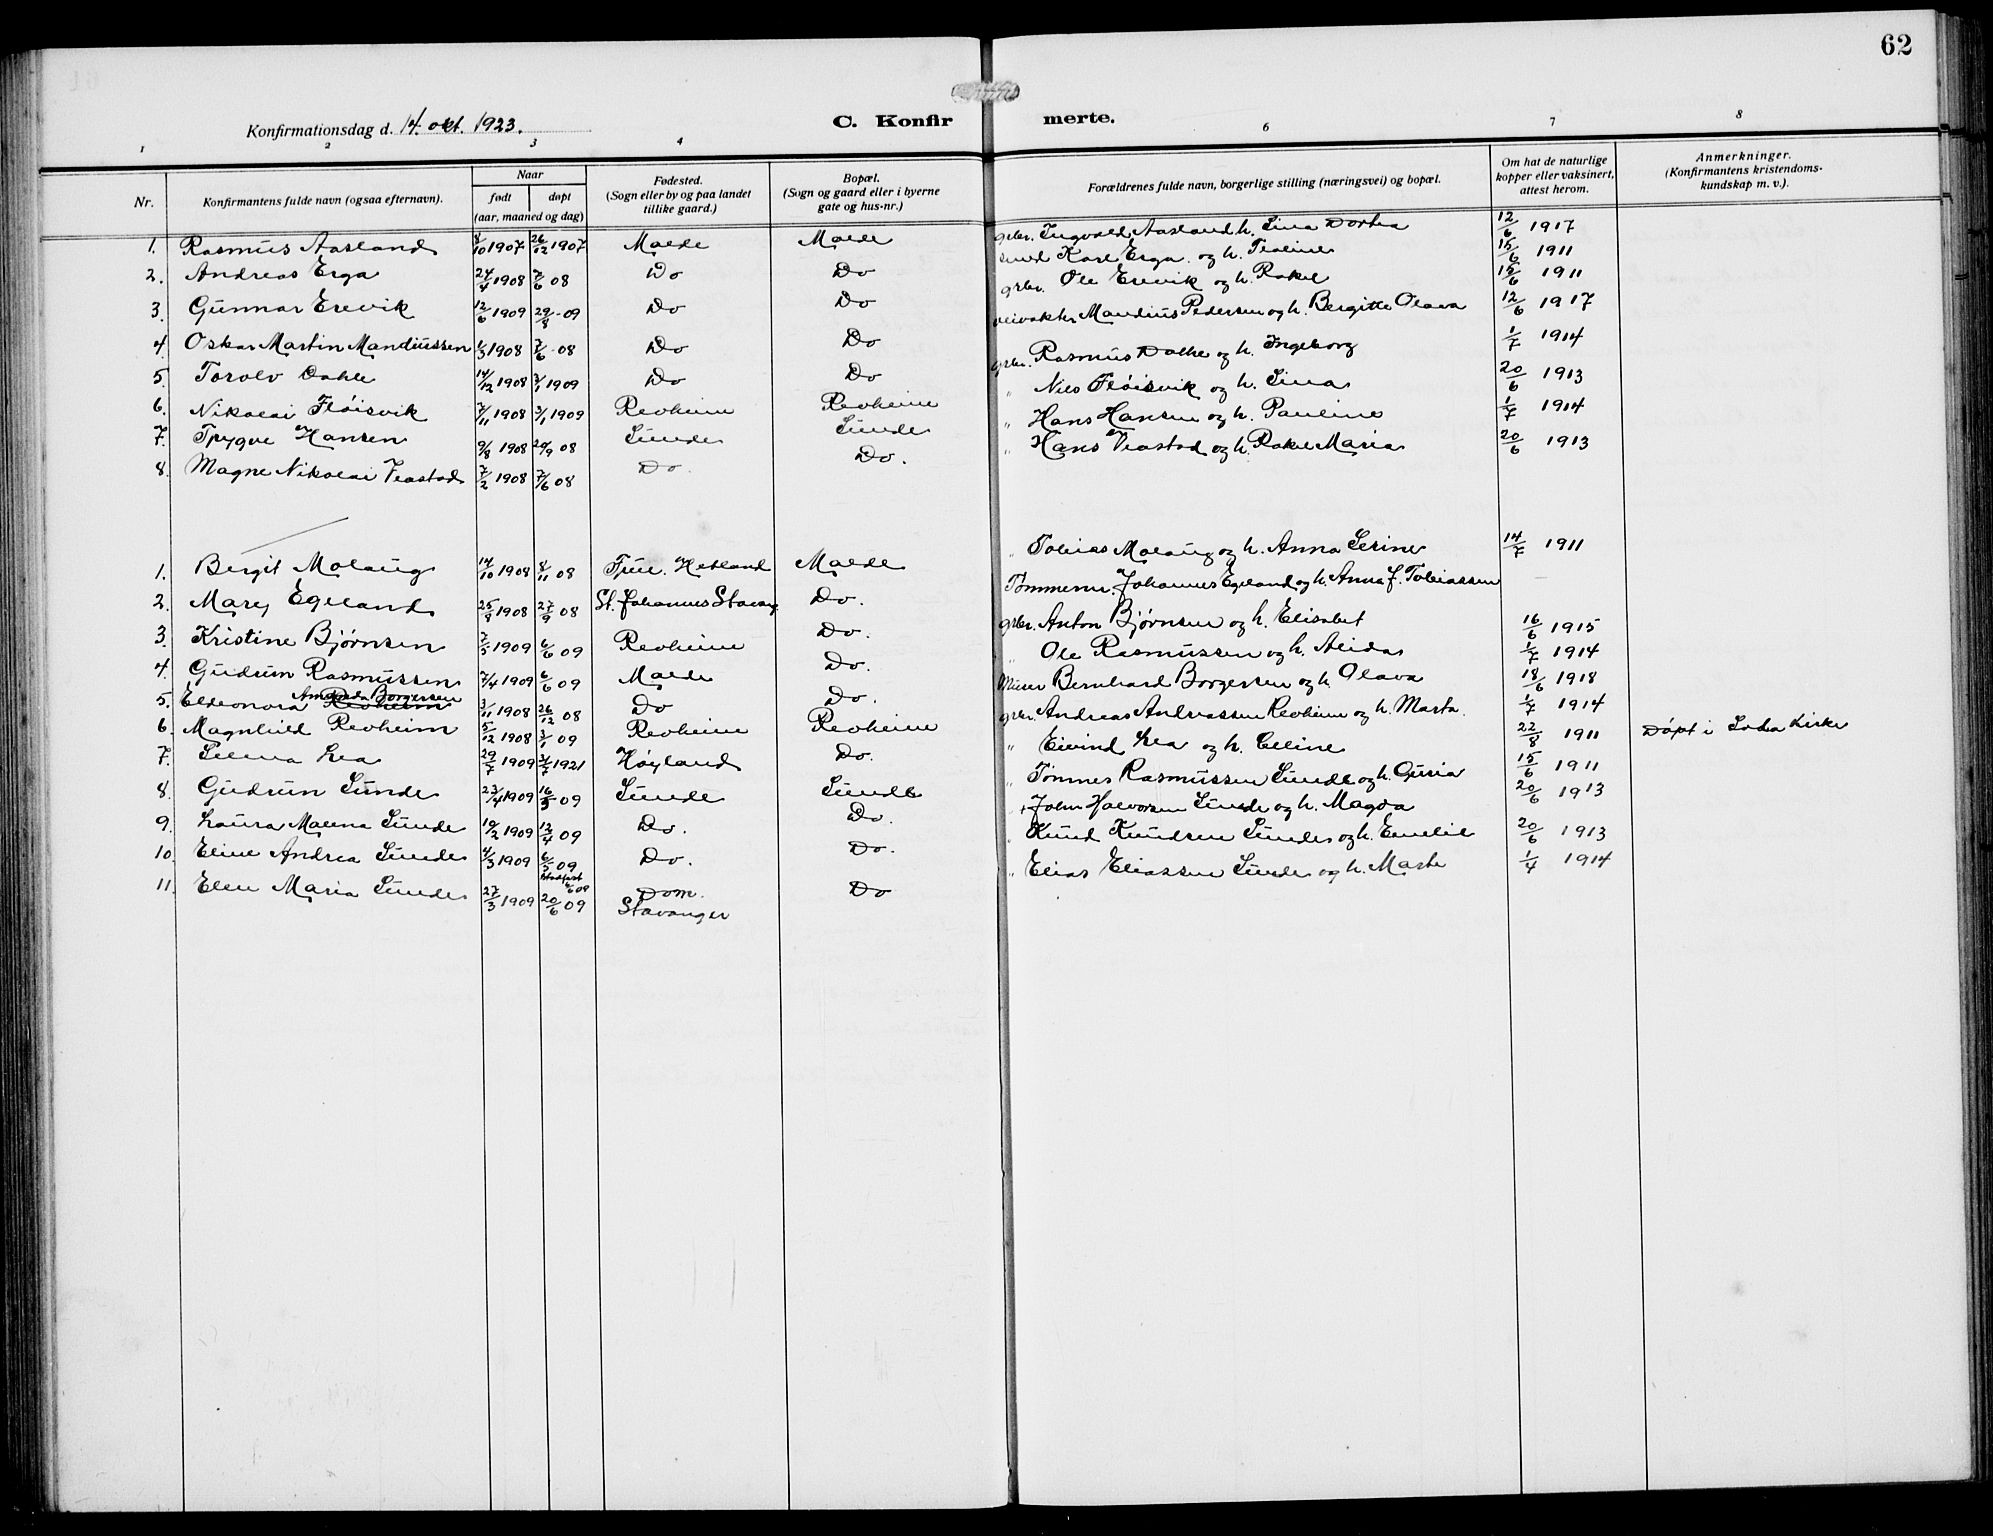 62
Konfirmationsdag d. 14. okt. 1923.
C. Konfir merte.
1 2 3 4 6 7 8
Nr.
Konfirmantens fulde navn (ogsaa efternavn).
Naar
født døpt
(aar, maaned og dag)
Fødested.
(Sogn eller by og paa landet
tillike gaard.)
Bopæl.
(Sogn og gaard eller i byerne
gate og hus-nr.)
Forældrenes fulde navn, borgerlige stilling (næringsvei) og bopæl.
Om hat de naturlige
kopper eller vaksinert,
attest herom.
Anmerkninger.
(Konfirmantens kristendoms-
kundskap m. v.).
1. Rasmus Aasland 8/10 1907 26/12 1907 Malde Malde grbr. Ingvald Aasland h. Lina Dortea 12/6 1917
2. Andreas Erga 24/4 1908 7/6 08 Do Do smed Karl Erga og h. Tealine 15/6 1911
3. Gunnar Erevik 12/6 1909 29/8 - 09 Do Do grbr. Ole Erevik og h. Rakel 15/6 1911
4. Oskar Martin Mandiussen 1/3 1908 7/6 - 08 Do Do veivokter Mandius Pedersen og h. Bergitte Olava 12/6 1917
5. Torolv Dahle 14/12 1908 3/1 1909 Do Do grbr. Rasmus Dalhe og h. Ingeborg 1/7 1914
6. Nikolai Fløisvik 7/11 1908 3/1 1909 Revheim Revheim " Nils Fløisvik og h. Lina 20/6 1913
7. Trygve Hansen 9/8 1908 20/9 08 Sunde Sunde " Hans Hansen og h. Pauline 1/7 1914
8. Magne Nikolai Veastad 7/2 1908 7/6 08 Do. Do. " Hans Veastad og h. Rakel Maria 20/6 1913
1. Bergit Molaug 14/10 1908 8/11 08 Frue. Hetland Malde " Tobias Molaug og h. Anna Serine 14/7 1911
2. Mary Egeland 25/8 1908 27/9 08 St. Johannes Stavang Do. Tømmerm. Johannes Egeland og h. Anna f. Tobiassen —
3. Kristine Bjørnsen 7/5 1909 6/6 09 Revheim Do. grbr. Anton Bjørnsen og h. Elisabet 16/6 1915
4. Gudrun Rasmussen 7/4 1909 6/6 09 Malde Do. " Ole Rasmussen og h. Alida 1/7 1914
5. Eldeonora Amanda Borgersen Revheim 3/11 1908 26/12 08 Do Do. Murer Bernhard Borgersen og h. Olava 18/6 1918
6. Magnhild Revheim 5/12 1908 3/1 09 Revheim Revheim grbr. Andreas Andreassen Revheim og h. Marta. 1/7 1914
7. Selma Lea 29/7 1909 3/7 1921 Høyland Do. " Eivind Lea og h. Celine 22/8 1911 Døpt i Sola Kirke
8. Gudrun Sunde 23/4 1909 16/5 09 Sunde Sunde " Tønnes Rasmussen Sunde og h. Guria 15/6 1911
9. Laura Malena Sunde 19/2 1909 12/4 09 Do. Do. + John Halvorsen Sunde og h. Magda 20/6 1913
10. Eline Andrea Sunde 4/3 1909 6/5 09 Do. Do. " Knud Knudsen Sunde og h. Emelie 20/6 1913
11. Elen Maria Sunde 27/3 1909 Stadfest 20/6 09 Dom. Stavanger Do " Elias Eliassen Sunde og h. Marta 1/4 1914